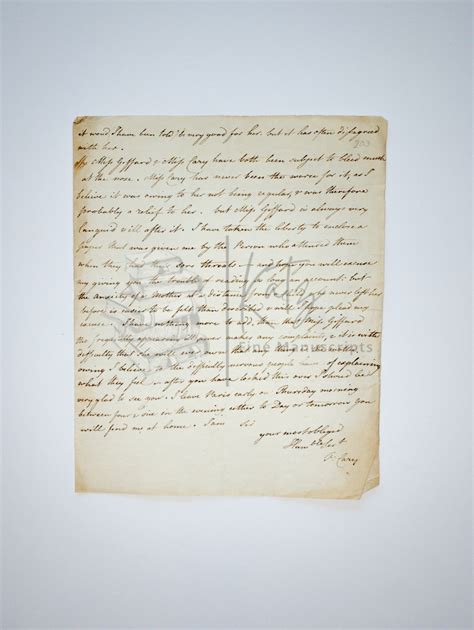 203
A word I have been told is very good for her. but it has often disagreed
with her.
Miss Giffard & Miss Cary have both been subject to bleed much
at the nose. Miss Cary has never been the worse for it, as I
believe it was owing to her not being regular, & was therefore
probably a relief to her. but Miss Giffard is always very
languid & ill after it. I have taken the liberty to enclose a
paper that was given me by the Person who attended them
when they had throats and hope you will excuse
my giving you the trouble of reading so long an account: but
the anxiety of a mother at a distance from
before is easier to be felt than described & will I hope plead my
excuse. I have nothing more to add, than that Miss Giffard
never makes any complaints, & it is with
difficulty that she will own that any thing
owing I believe to the difficulty nervous people have of explaining
what they feel. after you have looked this over I should be
very glad to see you. I leave Paris early on Thursday morning
between four & six in the evening either to Day or tomorrow you
will find me at home. I am Sir
your most obliged
Hum:
Cary
Katz
Fine Manuscripts